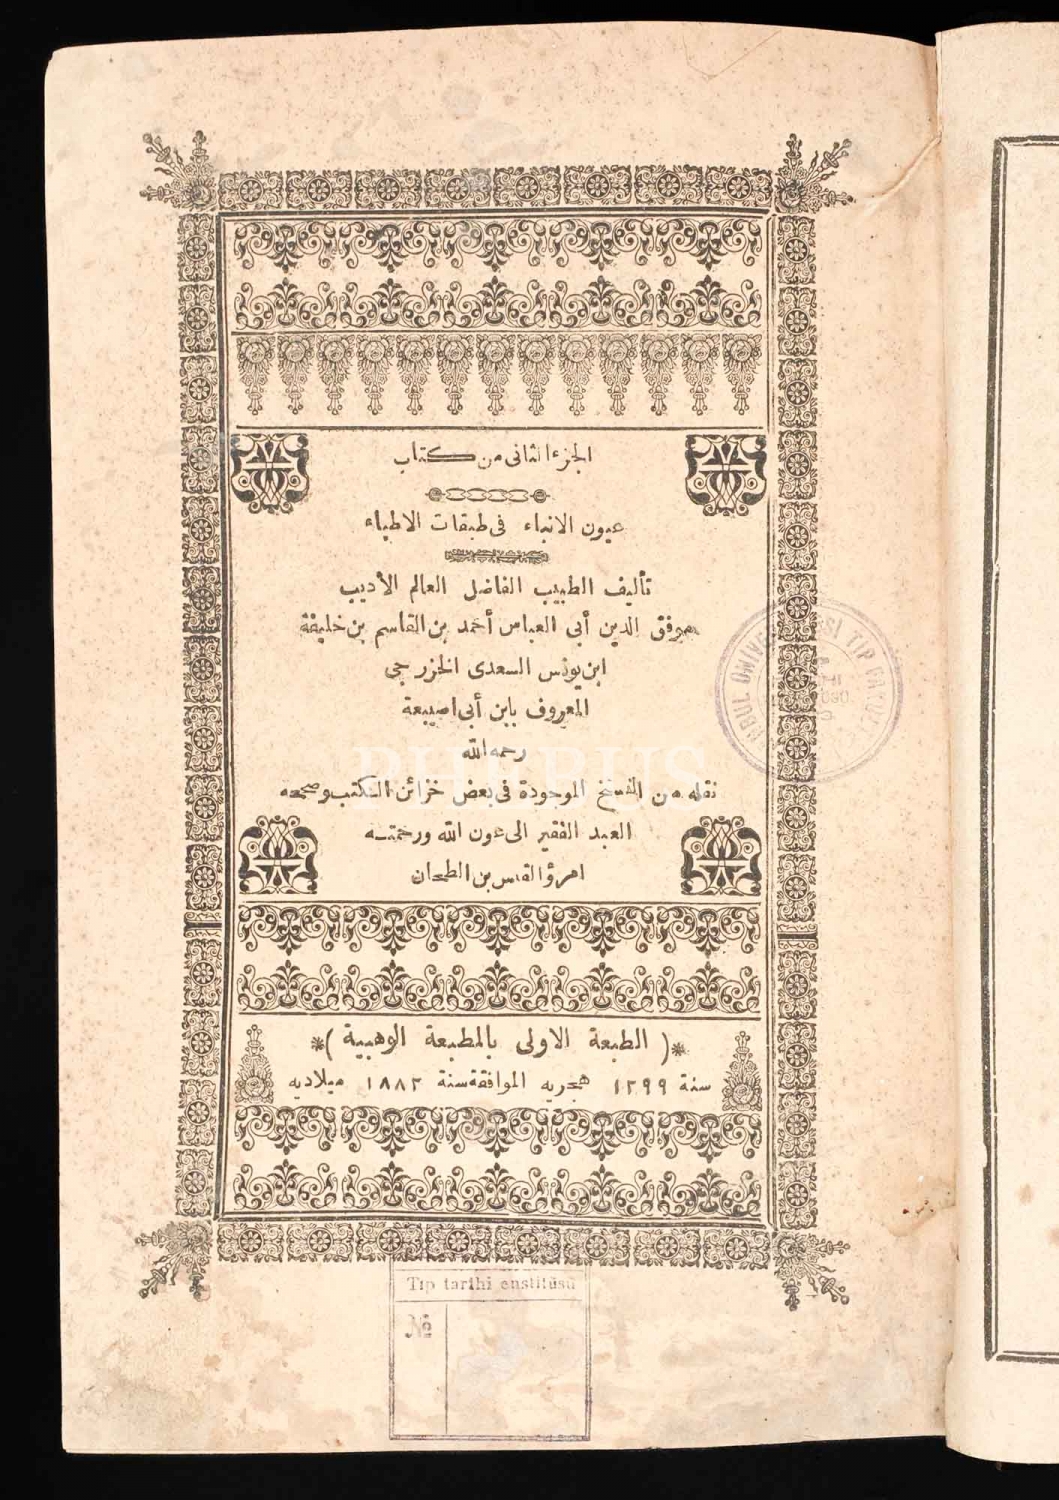 الجزء الثانى من كتاب
عيون الانباء فى طبقات الاطباء
تأليف الطبيب الفاضل العالم الأديب
موفق الدين أبى العباس أحمد بن القاسم بن خليفة
ابن يونس السعدى الخزرجى
المعروف بابن أبى اصيبعة
رحمه الله
PHEBUS
نقله من النسخ الموجودة فى بعض خزائن الكتب وصححه
العبد الفقير الى عون الله ورحمته
امرؤ القيس بن الطحان
*( الطبعة الاولى بالمطبعة الوهبية )*
سنة ١٢٩٩ هجريه الموافقة سنة ١٨٨٢ ميلاديه
Tıp tarihi enstitüsü
№
TIP